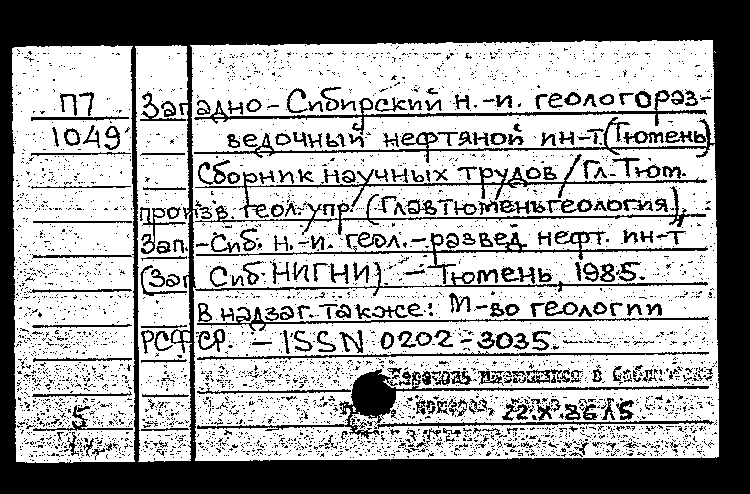 П7 Западно-Сибирский н.-и. геологораз-
1049 ведочный нефтяной ин-т (Тюмень)
Сборник научных трудов / Гл. Тюм.
произв. геол. упр. (Главтюменьгеология),
Зап.-Сиб. н.-и. геол.-развед. нефт. ин-т
(Зап Сиб. НИГНИ) - Тюмень, 1985.
В надзаг. также: М-во геологии
РСФСР. - ISSN 0202-3035.
Перечень имеющихся в библиотеке
номеров, 22.X.86
5